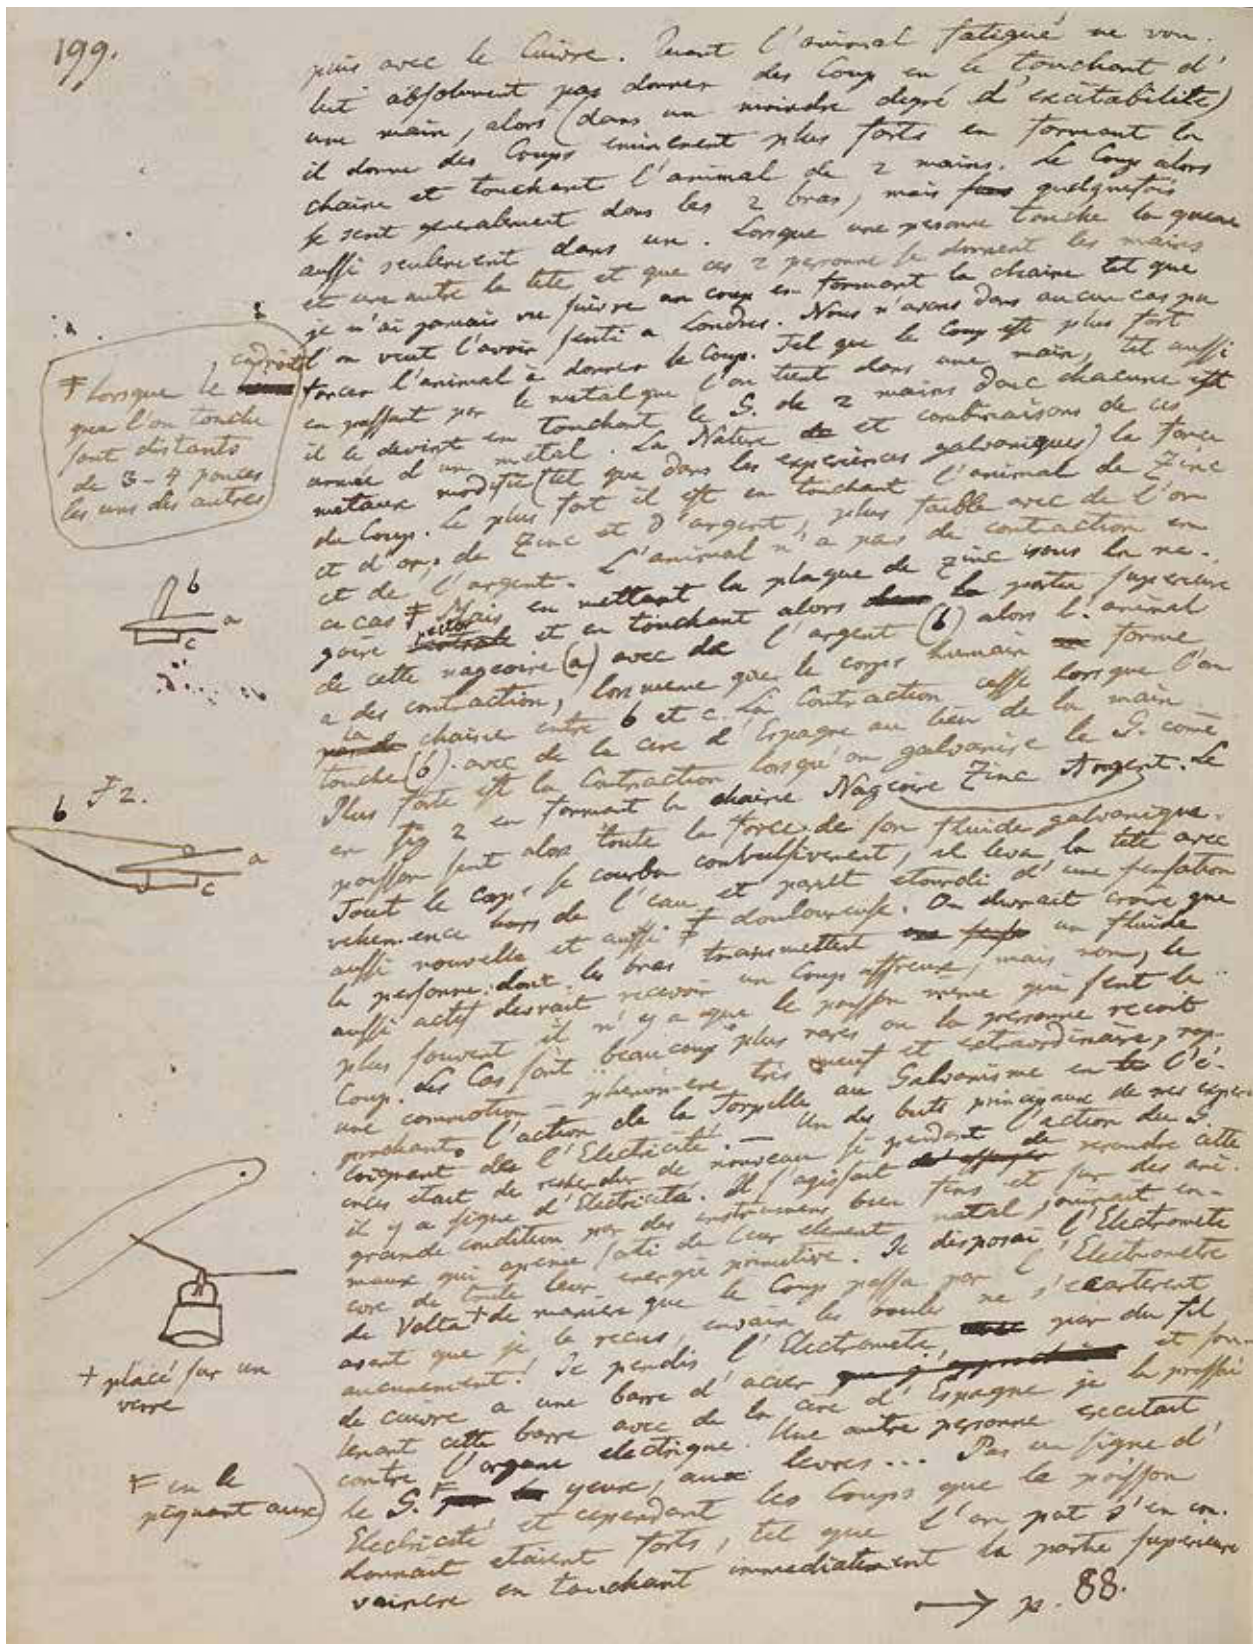 199.
puis avec le Cuivre. Quant l'animal fatigué ne vou-
lut absolument pas donner des Coup en le touchant d'
une main, alors (dans un moindre degré d'excitabilité)
il donne des Coups eminement plus forts en formant la
chaine et touchant l'animal de 2 mains. Le Coup alors
se sent generalement dans les 2 bras, mais quelquefois
aussi seulement dans un. Lorsque une personne touche la queue
et une autre la tete et que ces 2 personne se donnent les mains
je n'ai jamais vu suivre un coup en formant la chaine tel que
l'on veut l'avoir senti a Londres. Nous n'avons dans aucun cas pu
forcer l'animal à donner le Coup. Tel que le Coup est plus fort
en passant par le metal que l'on tient dans une main, tel aussi
il le devint en touchant le G. de 2 mains dont chacune est
armée d'un metal. La Nature et combinaisons de ces
metaux modifie (tel que dans les experiences galvaniques) la force
du Coup. Le plus fort il est en touchant l'animal de Zinc
et d'or, de Zinc et d'argent, plus faible avec de l'or
et de l'argent. L'animal n'a pas de contraction en
ce cas Ŧ Mais en mettant la plaque de Zinc sous la na-
goire pector et en touchant alors la partie superieure
de cette nageoire (a) avec de l'argent (b) alors l'animal
a des contraction, lors meme que le corps humain forme
la chaine entre b et c. La Contraction cesse lorsque l'on
touche (b) avec de la cire d'Espagne au lieu de la main.
Plus forte est la Contraction lorsqu'on galvanise le G. come
en fig 2 en formant la chaine Nageoire Zinc Argent. Le
poisson sent alor toute la force de son fluide galvanique.
Tout le corps se courba convulsivement, il leva la tete avec
vehemence hors de l'eau et parait etourdi d'une sensation
aussi nouvelle et aussi douloureuse. On devrait croire que
la personne dont les bras transmettent un fluide
aussi actif devrait recevoir un Coup affreux, mais non, le
plus souvent il n'y a que le poisson même qui sent le
Coup. Les Cas sont beaucoup plus rares ou la personne recoit
une commotion – phenomene tres neuf et extraordinaire, rap-
prochant l'action de la Torpelle au Galvanisme en l'é-
loignant de l'Electricité. – Un des buts principaux de nos experi-
ences etait de rechercher de nouveau si pendant l'action du G.
il y a signe d'Electricité. Il s'agissait de rependre cette
grande condition par des instrumens bien fins et sur des ani-
maux qui apeine sorti de leur element natal, jouirait en-
core de toute leur energie primitive. Je disposai l'Electrometre
de Volta + de maniere que le Coup passa par l'Electrometre
avant que je le recus, envain les boules ne s'ecarterent
aucunement! Je pendis l'Electrometre, par du fil
de cuivre a une barre d'acier et sou-
tenant cette barre avec de la cire d'Espagne je la pressai
contre l'organe electrique. Une autre personne excitait
le G. Ŧ yeux, aux levres... Pas un signe d'
Electricité et cependant les Coups que le poisson
donnait etaient forts, tel que l'on put s'en con-
vaincre en touchant immediatement la partie superieure
→ p. 88.
Ŧ lorsque le endroits
que l'on touche
sont distants
de 3–4 pouces
les uns des autres
b
a
c
b F 2.
a
c
+ placé sur un
verre
Ŧ en le
piquant aux)